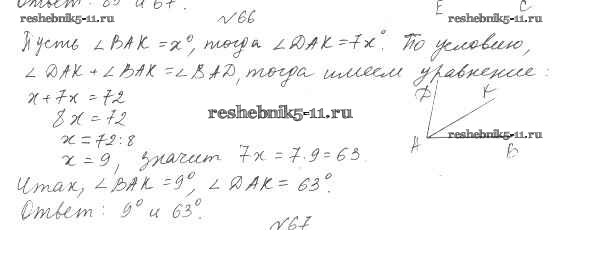 Ответ: 69 и 67.
E C
№66
reshebnik5-11.ru reshebnik5-11.ru
Пусть ∠BAK = x°, тогда ∠DAK = 7x°. По условию,
∠DAK + ∠BAK = ∠BAD, тогда имеем уравнение:
x + 7x = 72
8x = 72
x = 72 : 8
x = 9, значит 7x = 7 · 9 = 63.
D K
A B
reshebnik5-11.ru
reshebnik5-11.ru
Итак, ∠BAK = 9°, ∠DAK = 63°.
Ответ: 9° и 63°.
№67